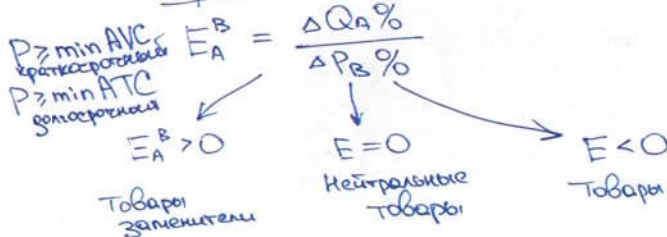 P ≥ min AVC
краткосрочный
P ≥ min ATC
долгосрочный
E_A^B = ΔQ_A% / ΔP_B%
E_A^B > 0
E = 0
E < 0
Товары
заменители
Нейтральные
товары
Товары